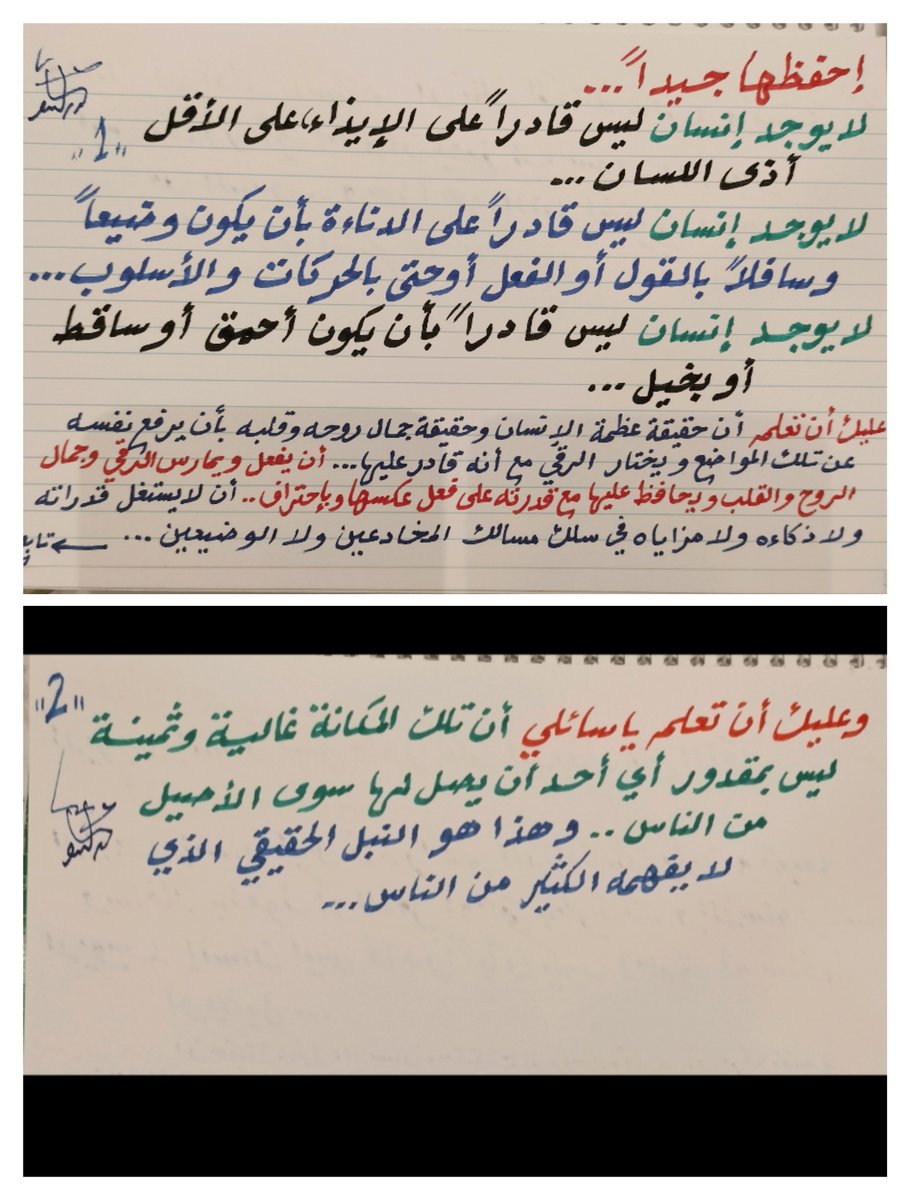 إحفظها جيداً...
لا يوجد إنسان ليس قادراً على الإيذاء، على الأقل
"1"
أذى اللسان...
لا يوجد إنسان ليس قادراً على الدناءة بأن يكون وضيعاً
وسافلاً بالقول أو الفعل أو حتى بالحركات والأسلوب...
لا يوجد إنسان ليس قادراً بأن يكون أحمق أو ساقط
أو بخيل...
عليك أن تعلم أن حقيقة عظمة الإنسان وحقيقة جمال روحه وقلبه بأن يرفع نفسه
عن تلك المواضع ويختار الرقي مع أنه قادر عليها... أن يفعل ويمارس الرقي وجمال
الروح والقلب ويحافظ عليها مع قدرته على فعل عكسها وبإحتراف.. أن لا يستغل قدراته
ولا ذكاءه ولا مزاياه في سلك مسالك المخادعين ولا الوضيعين...
"2"
وعليك أن تعلم يا سائلي أن تلك المكانة غالية وثمينة
ليس بمقدور أي أحد أن يصل لها سوى الأصيل
من الناس.. وهذا هو النبل الحقيقي الذي
لا يفهمه الكثير من الناس...